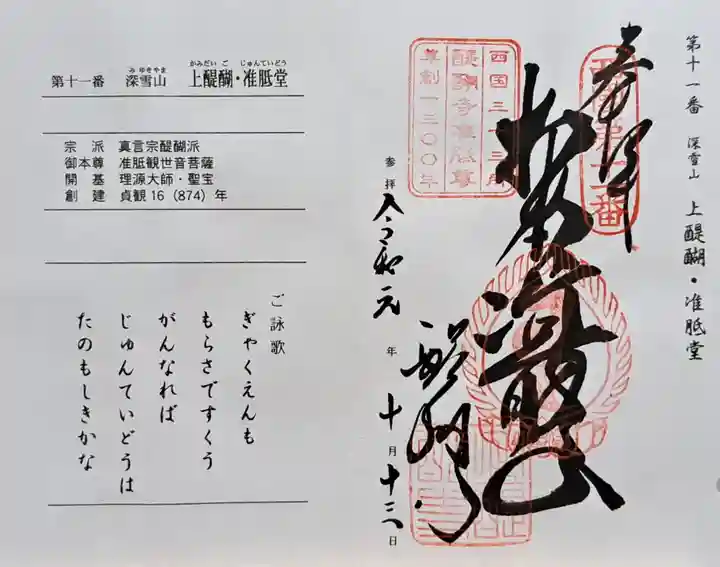 第十一番 深雪山 上醍醐・准胝堂
みゆきやま かみだいご じゅんていどう
宗派 真言宗醍醐派
御本尊 准胝観世音菩薩
開基 理源大師・聖宝
創建 貞観16(874)年
ご詠歌
ぎゃくえんも
もらさですくう
がんなれば
じゅんていどうは
たのもしきかな
第十一番 深雪山 上醍醐・准胝堂
奉拝
西国第十一番
西国三十三所
醍醐寺准胝尊
草創一三〇〇年
醍醐寺
参拝 令和元年十月十三日